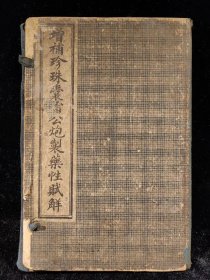 增補珍珠囊雷公炮製藥性賦解